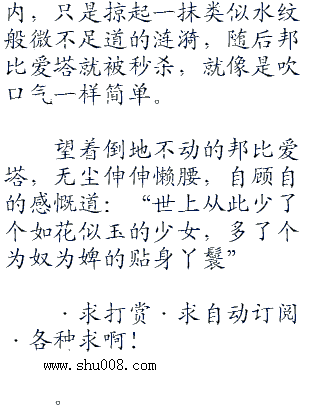 内，只是掠起一抹类似水纹
般微不足道的涟漪，随后邦
比爱塔就被秒杀，就像是吹
口气一样简单。
望着倒地不动的邦比爱
塔，无尘伸伸懒腰，自顾自
的感慨道：“世上从此少了
个如花似玉的少女，多了个
为奴为婢的贴身丫鬟”
·求打赏·求自动订阅
·各种求啊！
www.shu008.com
。